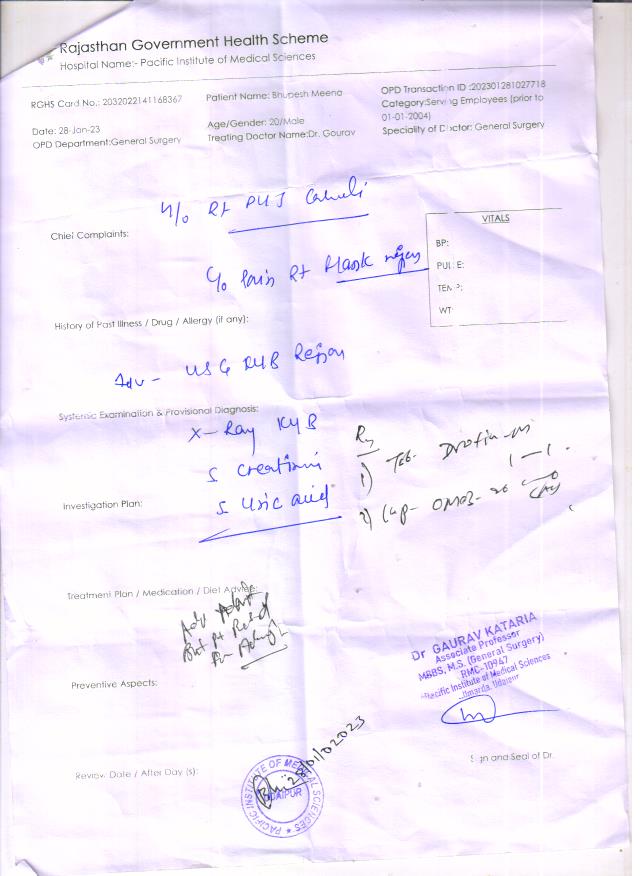 Rajasthan Government Health Scheme
Hospital Name:- Pacific Institute of Medical Sciences
RGHS Card No.: 2032022141168367
Patient Name: Bhupesh Meena
OPD Transaction ID :202301281027718
Category:Serving Employees (prior to
01-01-2004)
Date: 28-Jan-23
Age/Gender: 20/Male
OPD Department:General Surgery
Treating Doctor Name:Dr. Gourav
Speciality of Doctor: General Surgery
H/o Rt PUJ Calculi
Chief Complaints:
VITALS
BP:
PULSE:
TEMP:
WT:
C/o Pain Rt Flank region
History of Past Illness / Drug / Allergy (if any):
Adv - USG KUB Region
Systemic Examination & Provisional Diagnosis:
X-Ray KUB
S creatinine
S Uric acid
Rx
1) Tab.
1-1.
2) Cap-
Investigation Plan:
Treatment Plan / Medication / Diet Advice:
Adv
But Pt
for
Preventive Aspects:
Dr GAURAV KATARIA
Associate Professor
MBBS, M.S. (General Surgery)
RMC-10947
Pacific Institute of Medical Sciences
Umarda, Udaipur
Review Date / After Day (s):
Sign and Seal of Dr.
PACIFIC INSTITUTE OF MEDICAL SCIENCES
UDAIPUR